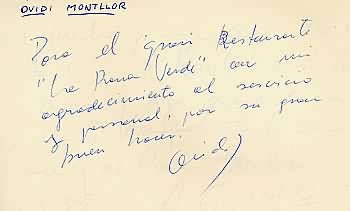 OVIDI MONTLLOR
Para el gran Restaurante
"La Rana Verde" con mi
agradecimiento al servicio
y personal, por su gran
buen hacer.
Ovidi